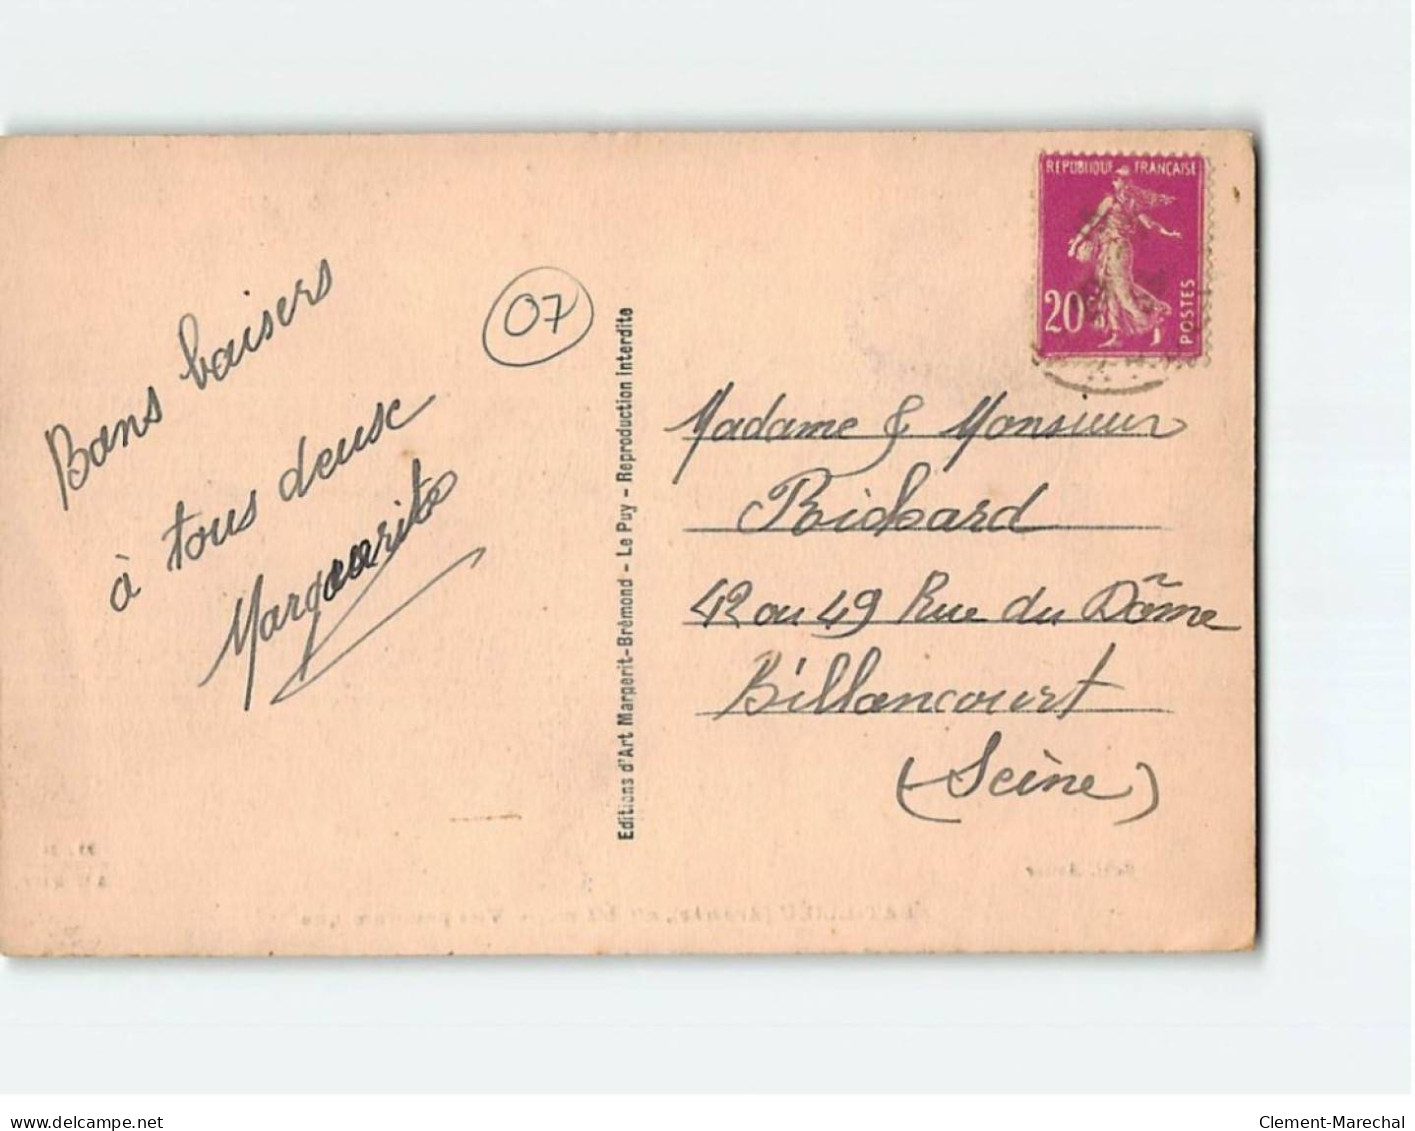 Bons baisers
à tous deux
Marguerite
07
Editions d'Art Margerit-Brémond - Le Puy - Reproduction interdite
REPUBLIQUE FRANÇAISE
20
POSTES
Madame & Monsieur
Richard
42 ou 49 Rue du Dôme
Billancourt
(Seine)
delcampe.net
Clement-Marechal